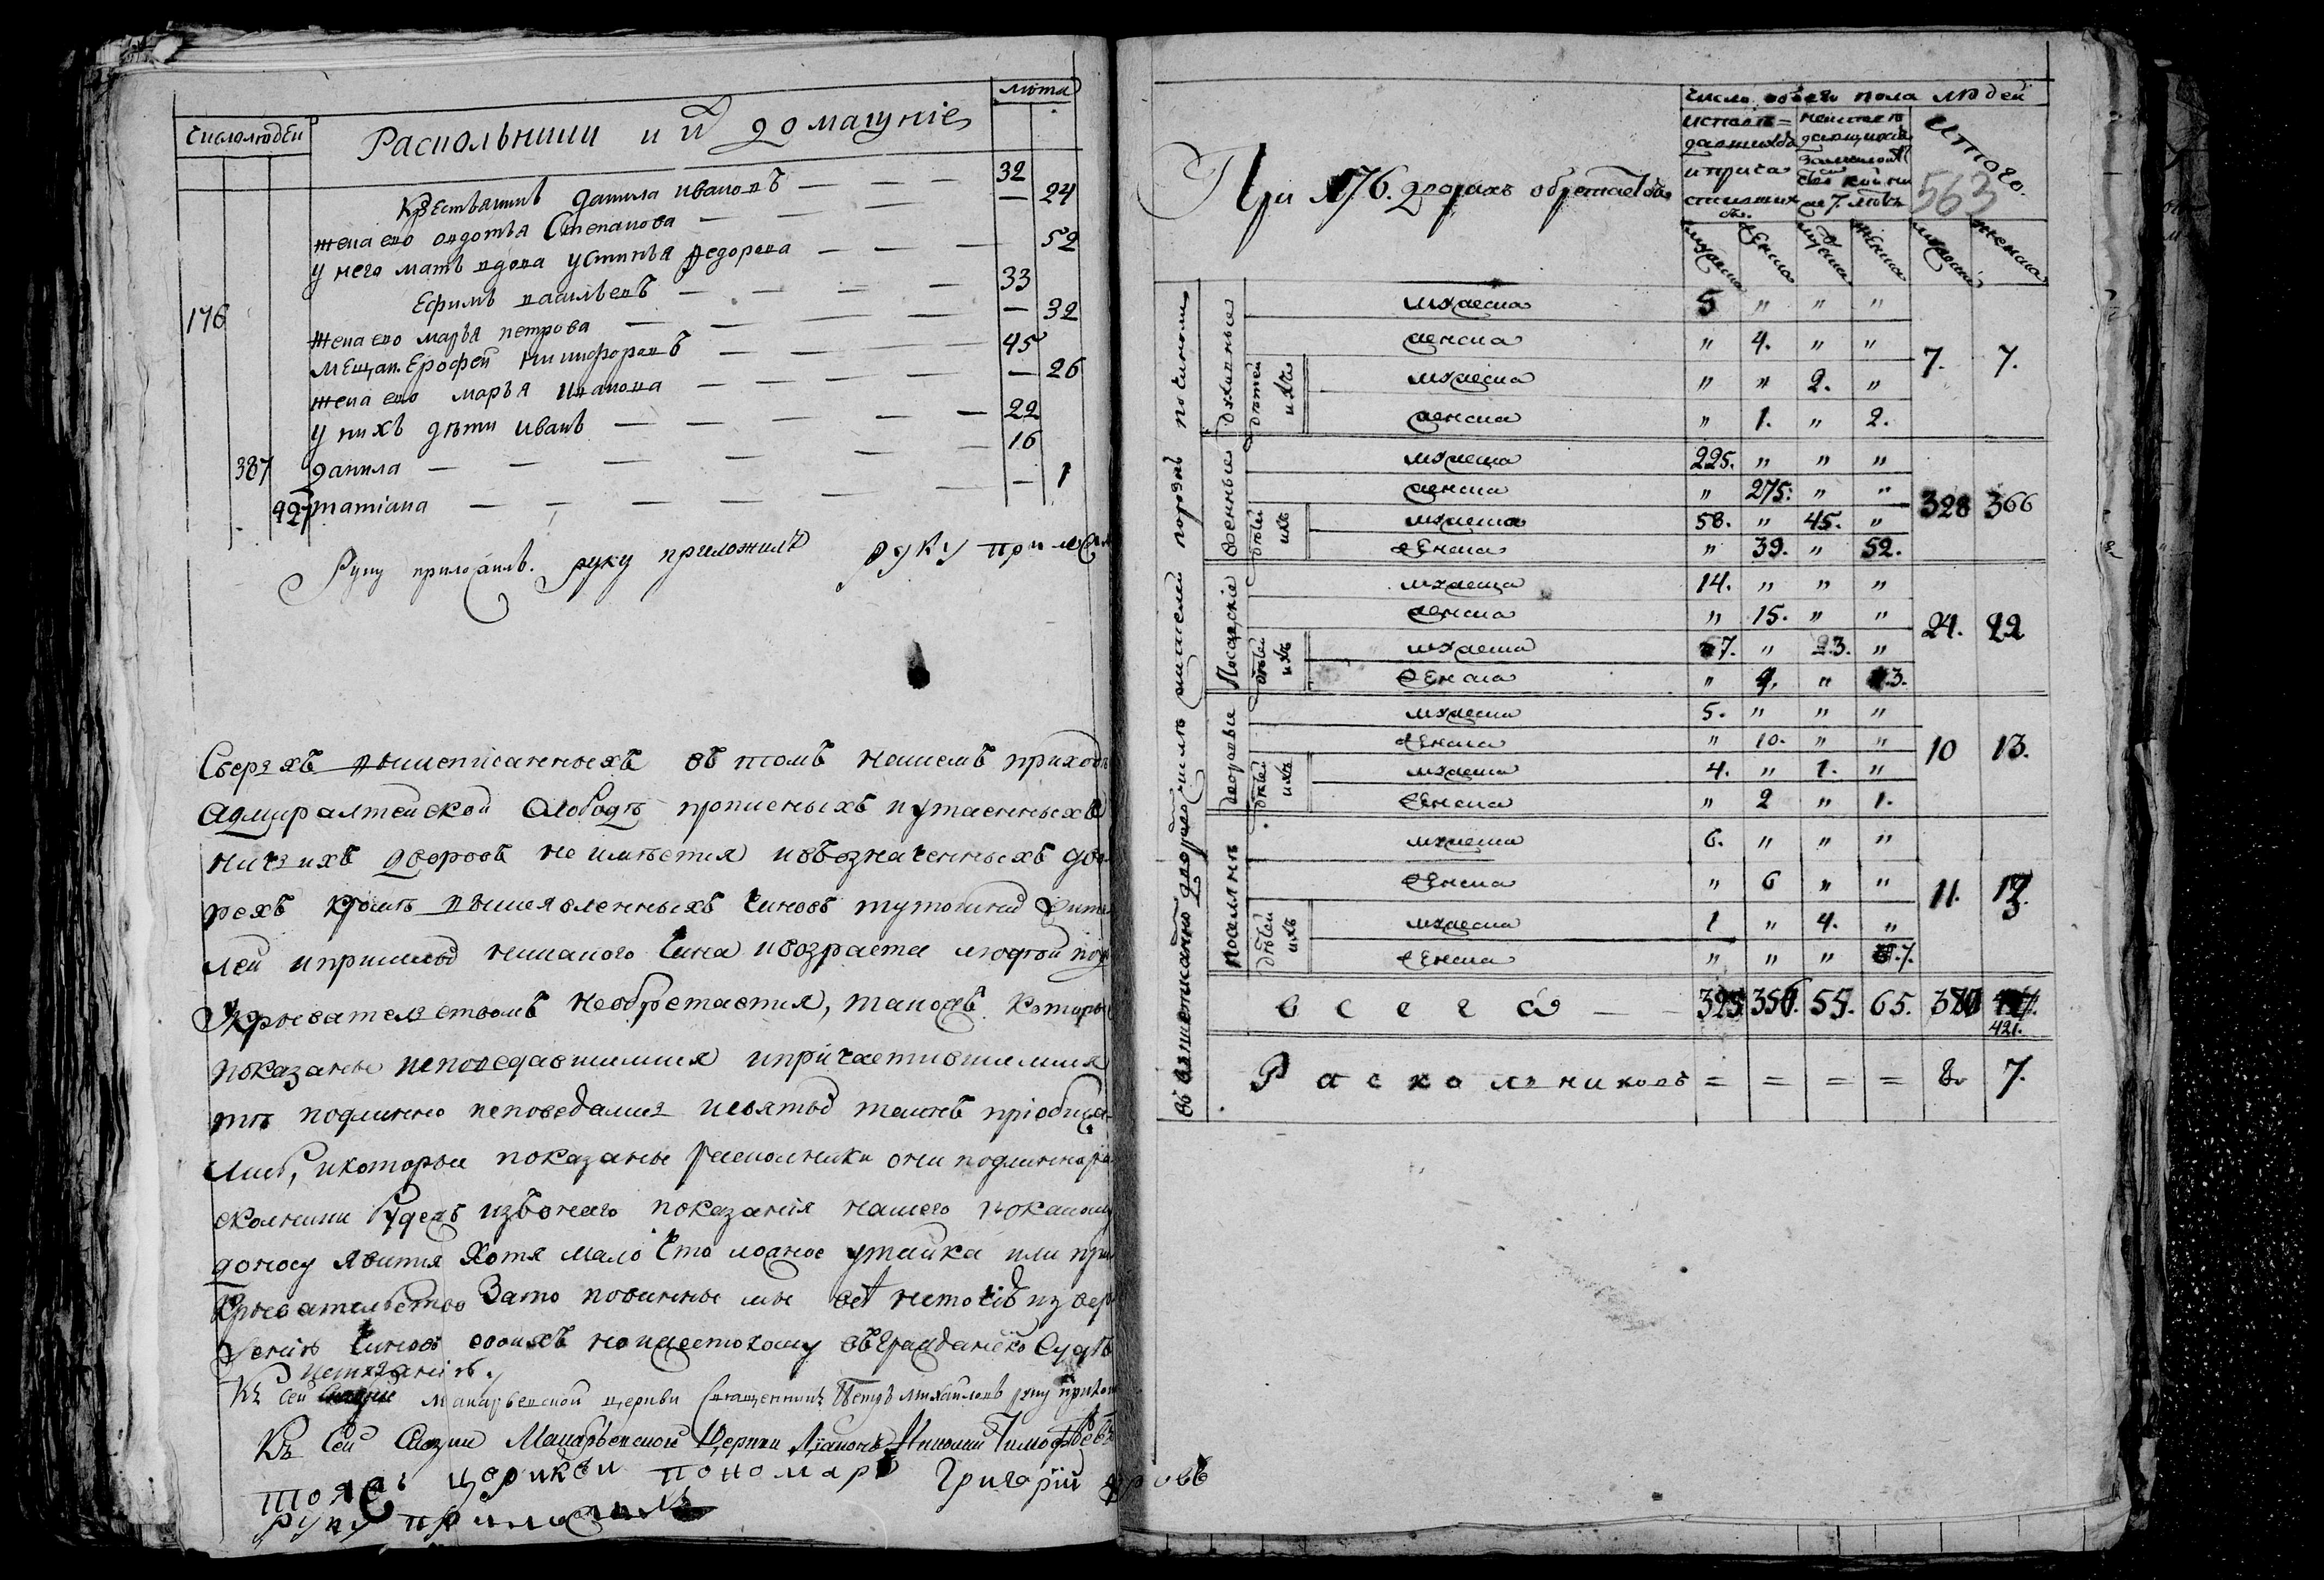 число людей
Раскольники и их домашніе
лѣта
Крестьянинъ данила ивановъ — — — 32
жена ево овдотья Степанова — — 24
у него мать вдова устинья федорова — — — 52
Ефимъ васильевъ — — — — 33
176
жена ево марья петрова — — — — 32
мещан. Ерофей никифоровъ — — — — 45
жена ево марья иванова — — — — — 26
у нихъ дѣти иванъ — — — — — 22
387 данила — — — — — — 16
427 татіана — — — — — — — 1
Руку приложилъ. руку приложилъ руку приложил
Сверхъ вышеписанныхъ въ томъ нашемъ приходѣ
адмиралтейской слободѣ прописныхъ и утаенныхъ
ничьихъ дворовъ не имѣется и въ означенныхъ дво
рехъ кромѣ вышеявленныхъ чиновъ тутошних жите
лей и пришлых никакого чина и возраста людей под
укрывательствомъ не обретается, такожъ которые
показаны исповедавшимися и причастившимися
тѣ подлинно исповедались и святых таинъ пріобща
лись, и которыя показаны расколники они подлинно ра
сколники а будетъ из онаго показанія нашего по какому
доносу явится хотя мало что ложное утайка или при
крывательство за то повинны мы
чиновъ своихъ но и жестокому въ гражданско Судѣ
истязанію.
Къ сей макарьевской церкви Священникъ Петръ михайловъ руку прилож
Къ Сей Сказки Макарьевской Церкви Діаконъ Николай Тимофѣевъ
тоя ж церикви пономарь Григорїй
руку приложилъ
При 176. дворахъ обретается
число обоего пола людей
исповѣдавшихся и причастившихся
не исповѣдающихся за малолѣтствомъ кои ниже 7. лѣтъ
итого.
563
мужеска женска мужеска женска мужеска женска
въ вышеписанно дворѣ
духовные
мужеска 5 " " "
женска " 4. " "
дѣтей ихъ
мужеска " " 2. "
женска " 1. " 2.
7. 7.
военные
мужеска 225. " " "
женска " 275. " "
дѣтей ихъ
мужеска 58. " 45. "
женска " 39. " 52.
328 366
Посацкіе
мужеска 14. " " "
женска " 15. " "
дѣтей ихъ
мужеска 7. " 23. "
женска " 4. " 3.
24. 22
дворовые
мужеска 5. " " "
женска " 10. " "
дѣтей ихъ
мужеска 4. " 1. "
женска " 2 " 1.
10 13.
поселянѣ
мужеска 6. " " "
женска " 6 " "
дѣтей ихъ
мужеска 1 " 4. "
женска " " " 7.
11. 13.
всего — — 325. 356. 55. 65. 380 421.
Раскольниковъ = = = = 8. 7.